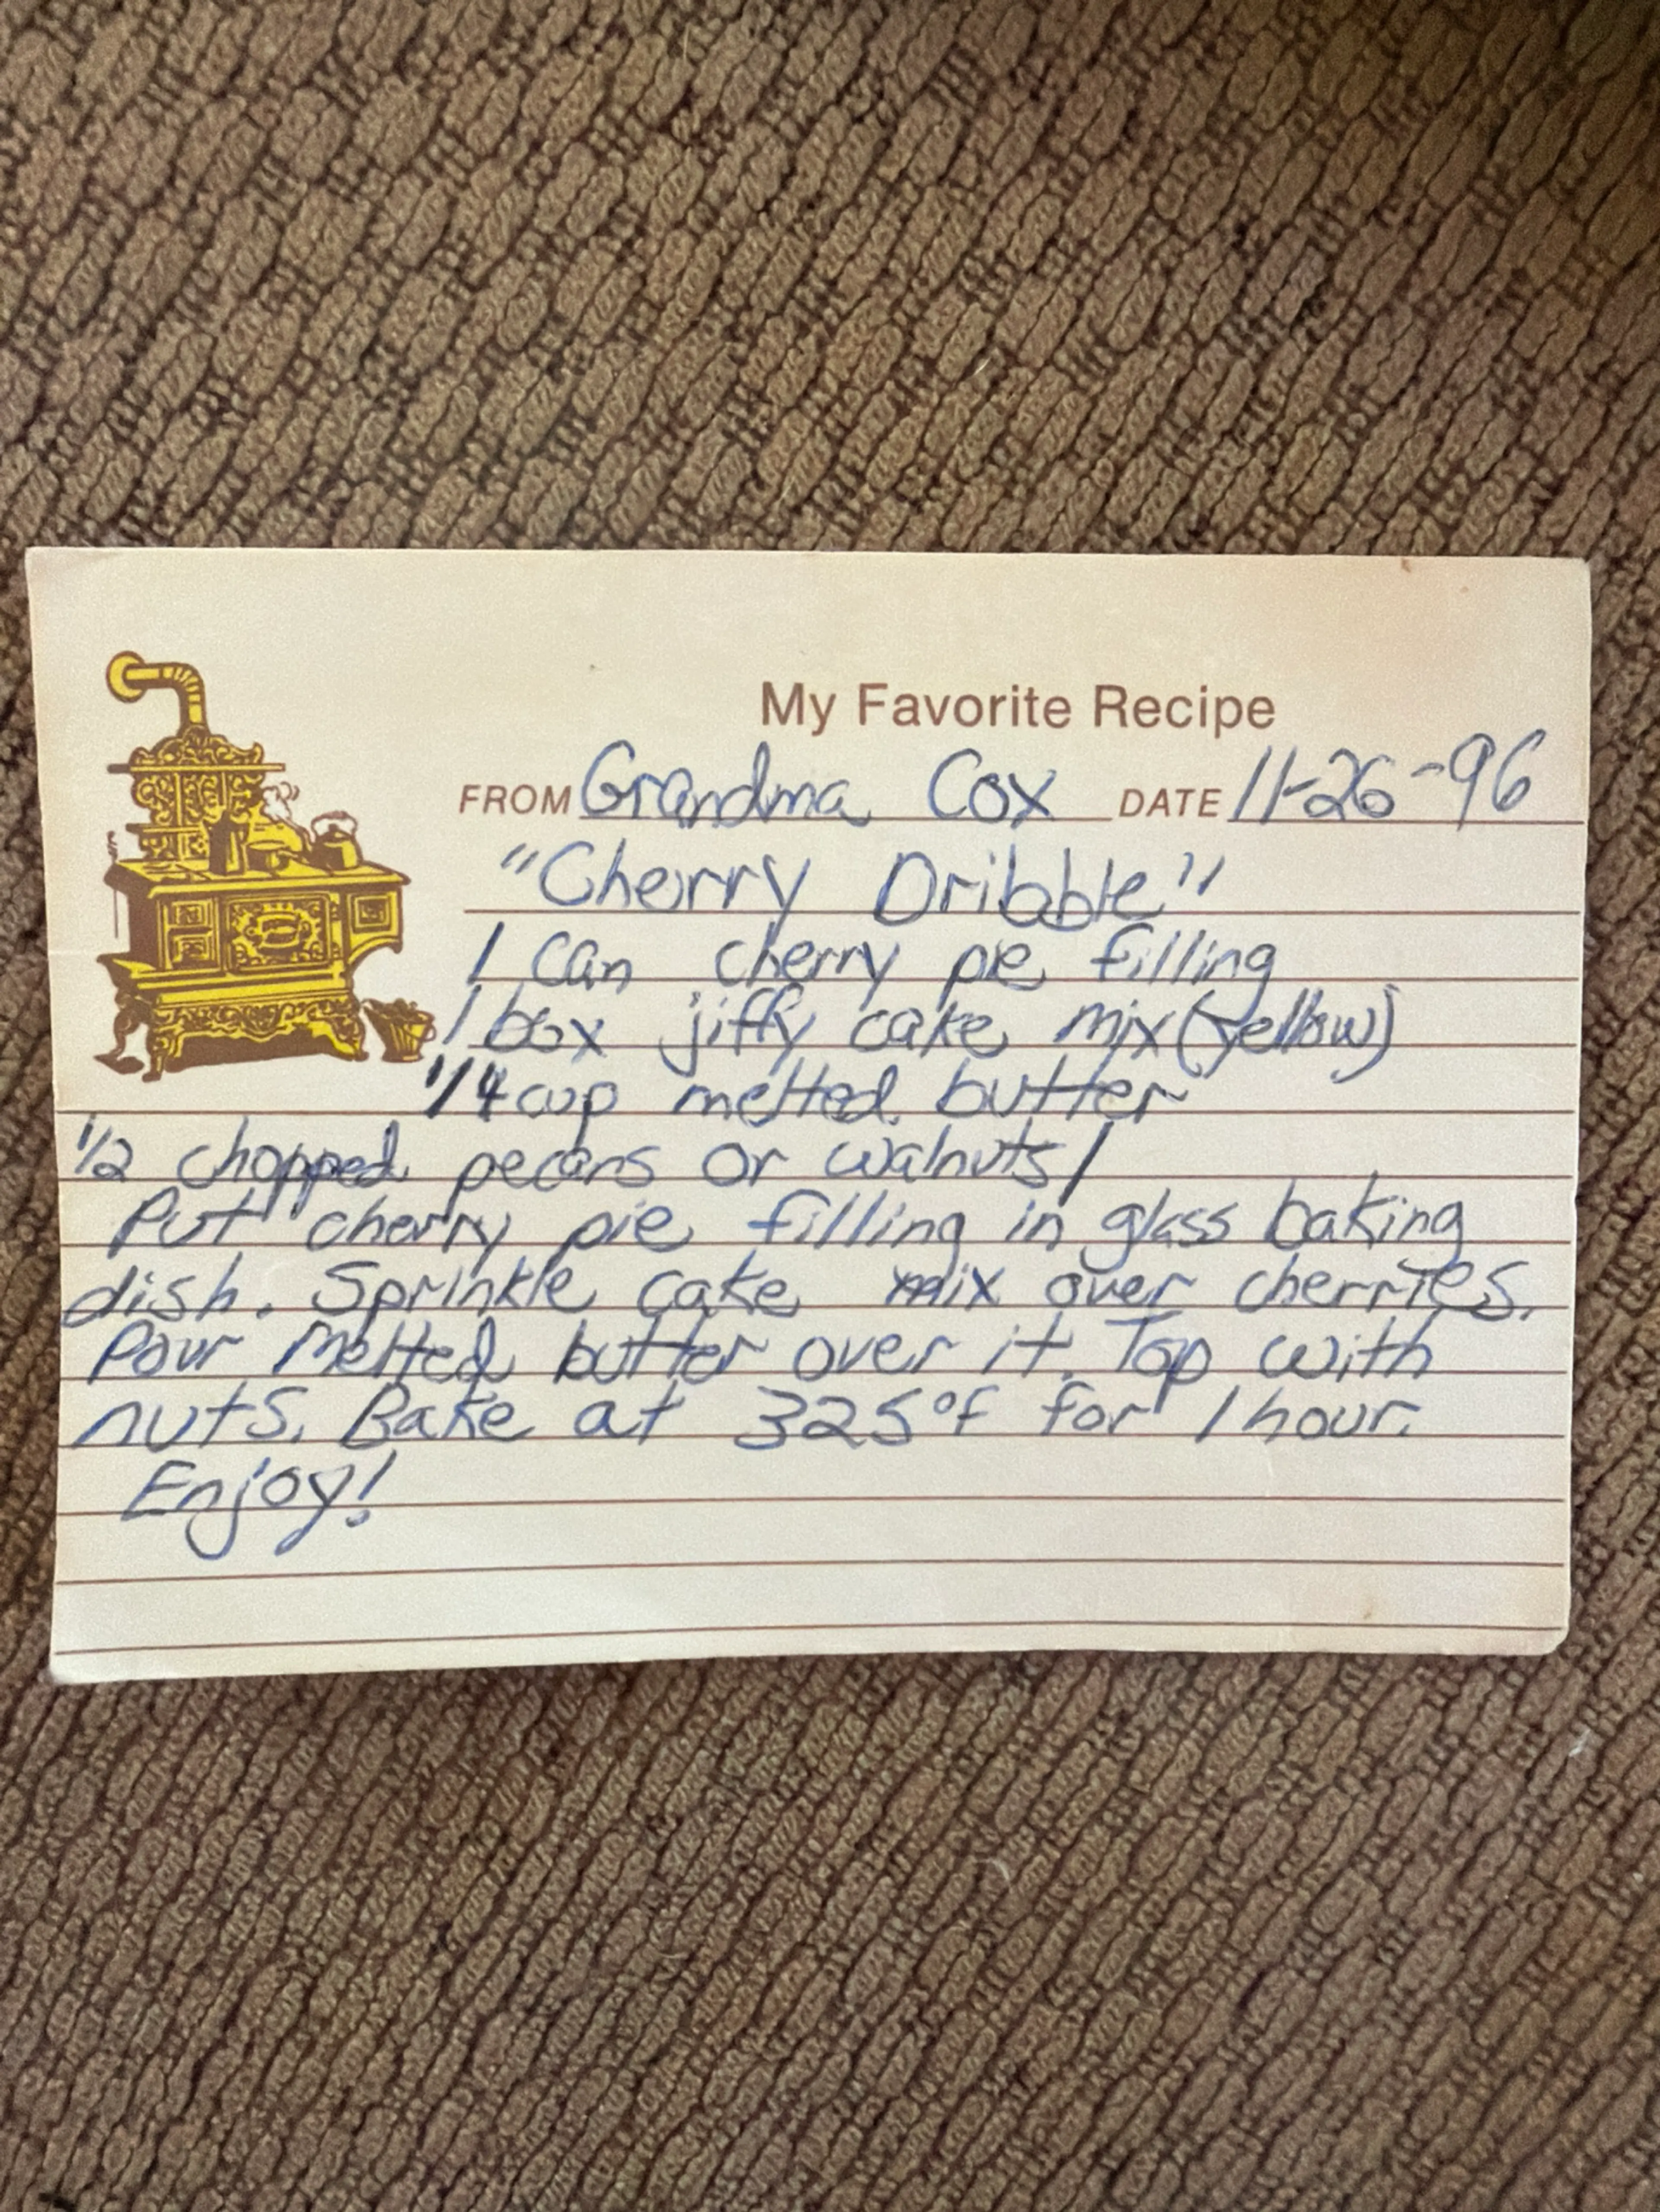 My Favorite Recipe
FROM Grandma Cox DATE 11-26-96
"Cherry Dribble"
1 can cherry pie filling
1 box jiffy cake mix (yellow)
1/4 cup melted butter
1/2 chopped pecans or walnuts/
Put cherry pie filling in glass baking
dish. Sprinkle cake mix over cherries.
Pour melted butter over it. Top with
nuts. Bake at 325°f for 1 hour.
Enjoy!